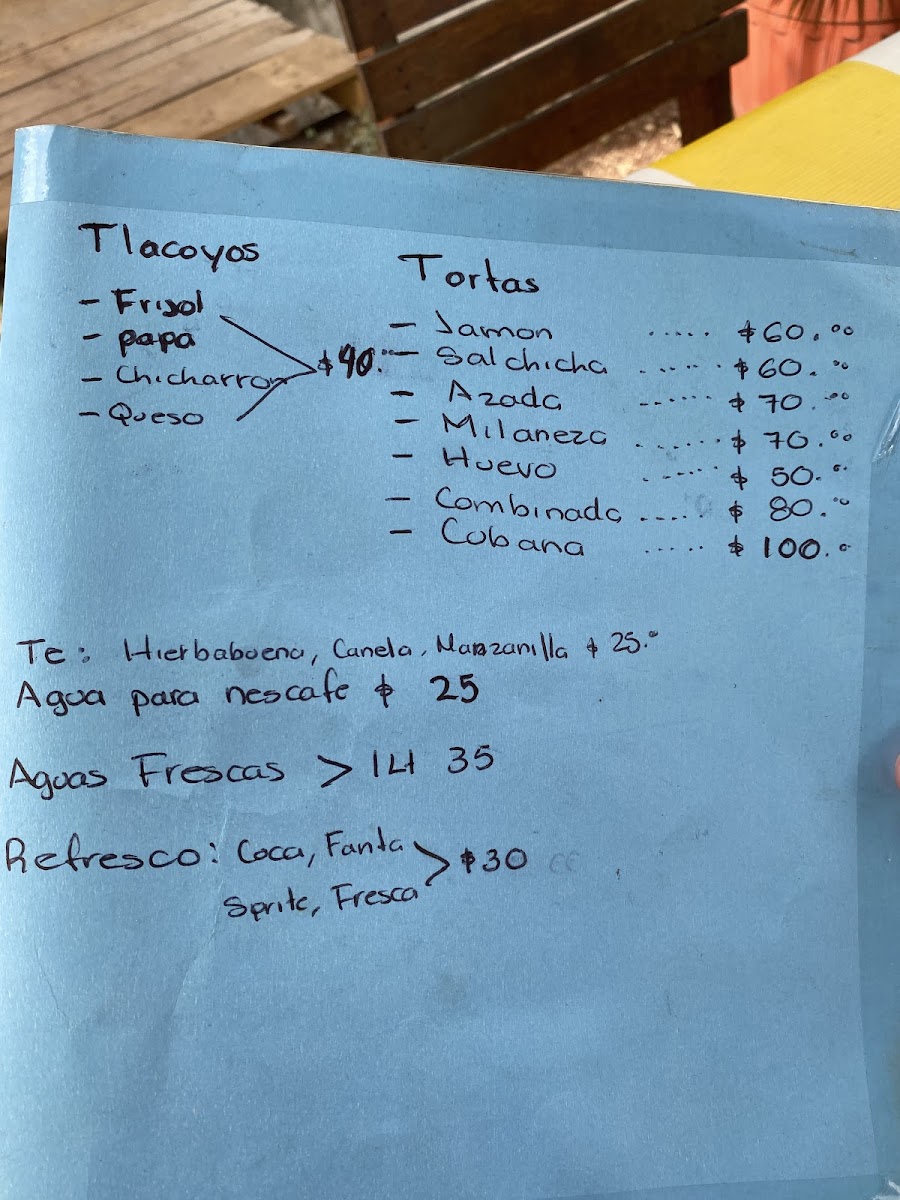 Tlacoyos
- Frijol
- papa
- Chicharron
- Queso
$40.00
Tortas
- Jamon ..... $60.00
- Salchicha ...... $60.00
- Azada ...... $70.00
- Milaneza ...... $70.00
- Huevo ...... $50.00
- Combinada ..... $80.00
- Cobana ..... $100.00
Te: Hierbabuena, Canela, Manzanilla $25.00
Agua para nescafe $ 25
Aguas Frescas > 1Lt 35
Refresco: Coca, Fanta
Sprite, Fresca > $30